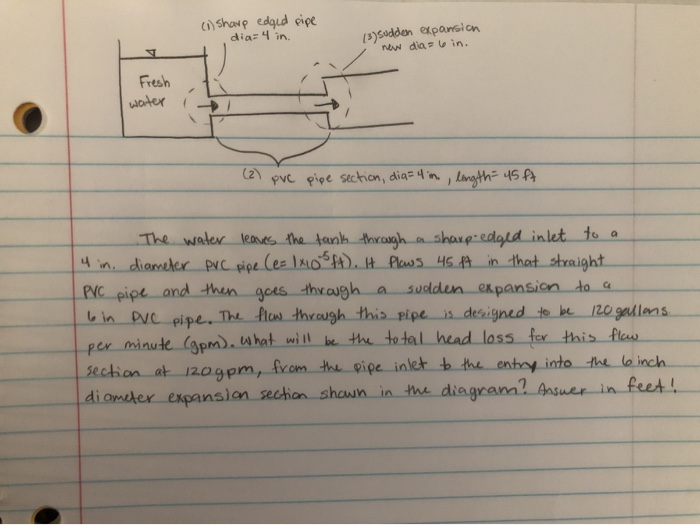 (1) sharp edged pipe
dia = 4 in.
(3) sudden expansion
new dia = 6 in.
Fresh
water
(2) PVC pipe section, dia = 4 in, length = 45 ft
The water leaves the tank through a sharp-edged inlet to a
4 in. diameter PVC pipe (e= 1x10⁻⁵ ft). It flows 45 ft in that straight
PVC pipe and then goes through a sudden expansion to a
6 in PVC pipe. The flow through this pipe is designed to be 120 gallons
per minute (gpm). What will be the total head loss for this flow
section at 120 gpm, from the pipe inlet to the entry into the 6 inch
diameter expansion section shown in the diagram? Answer in feet!